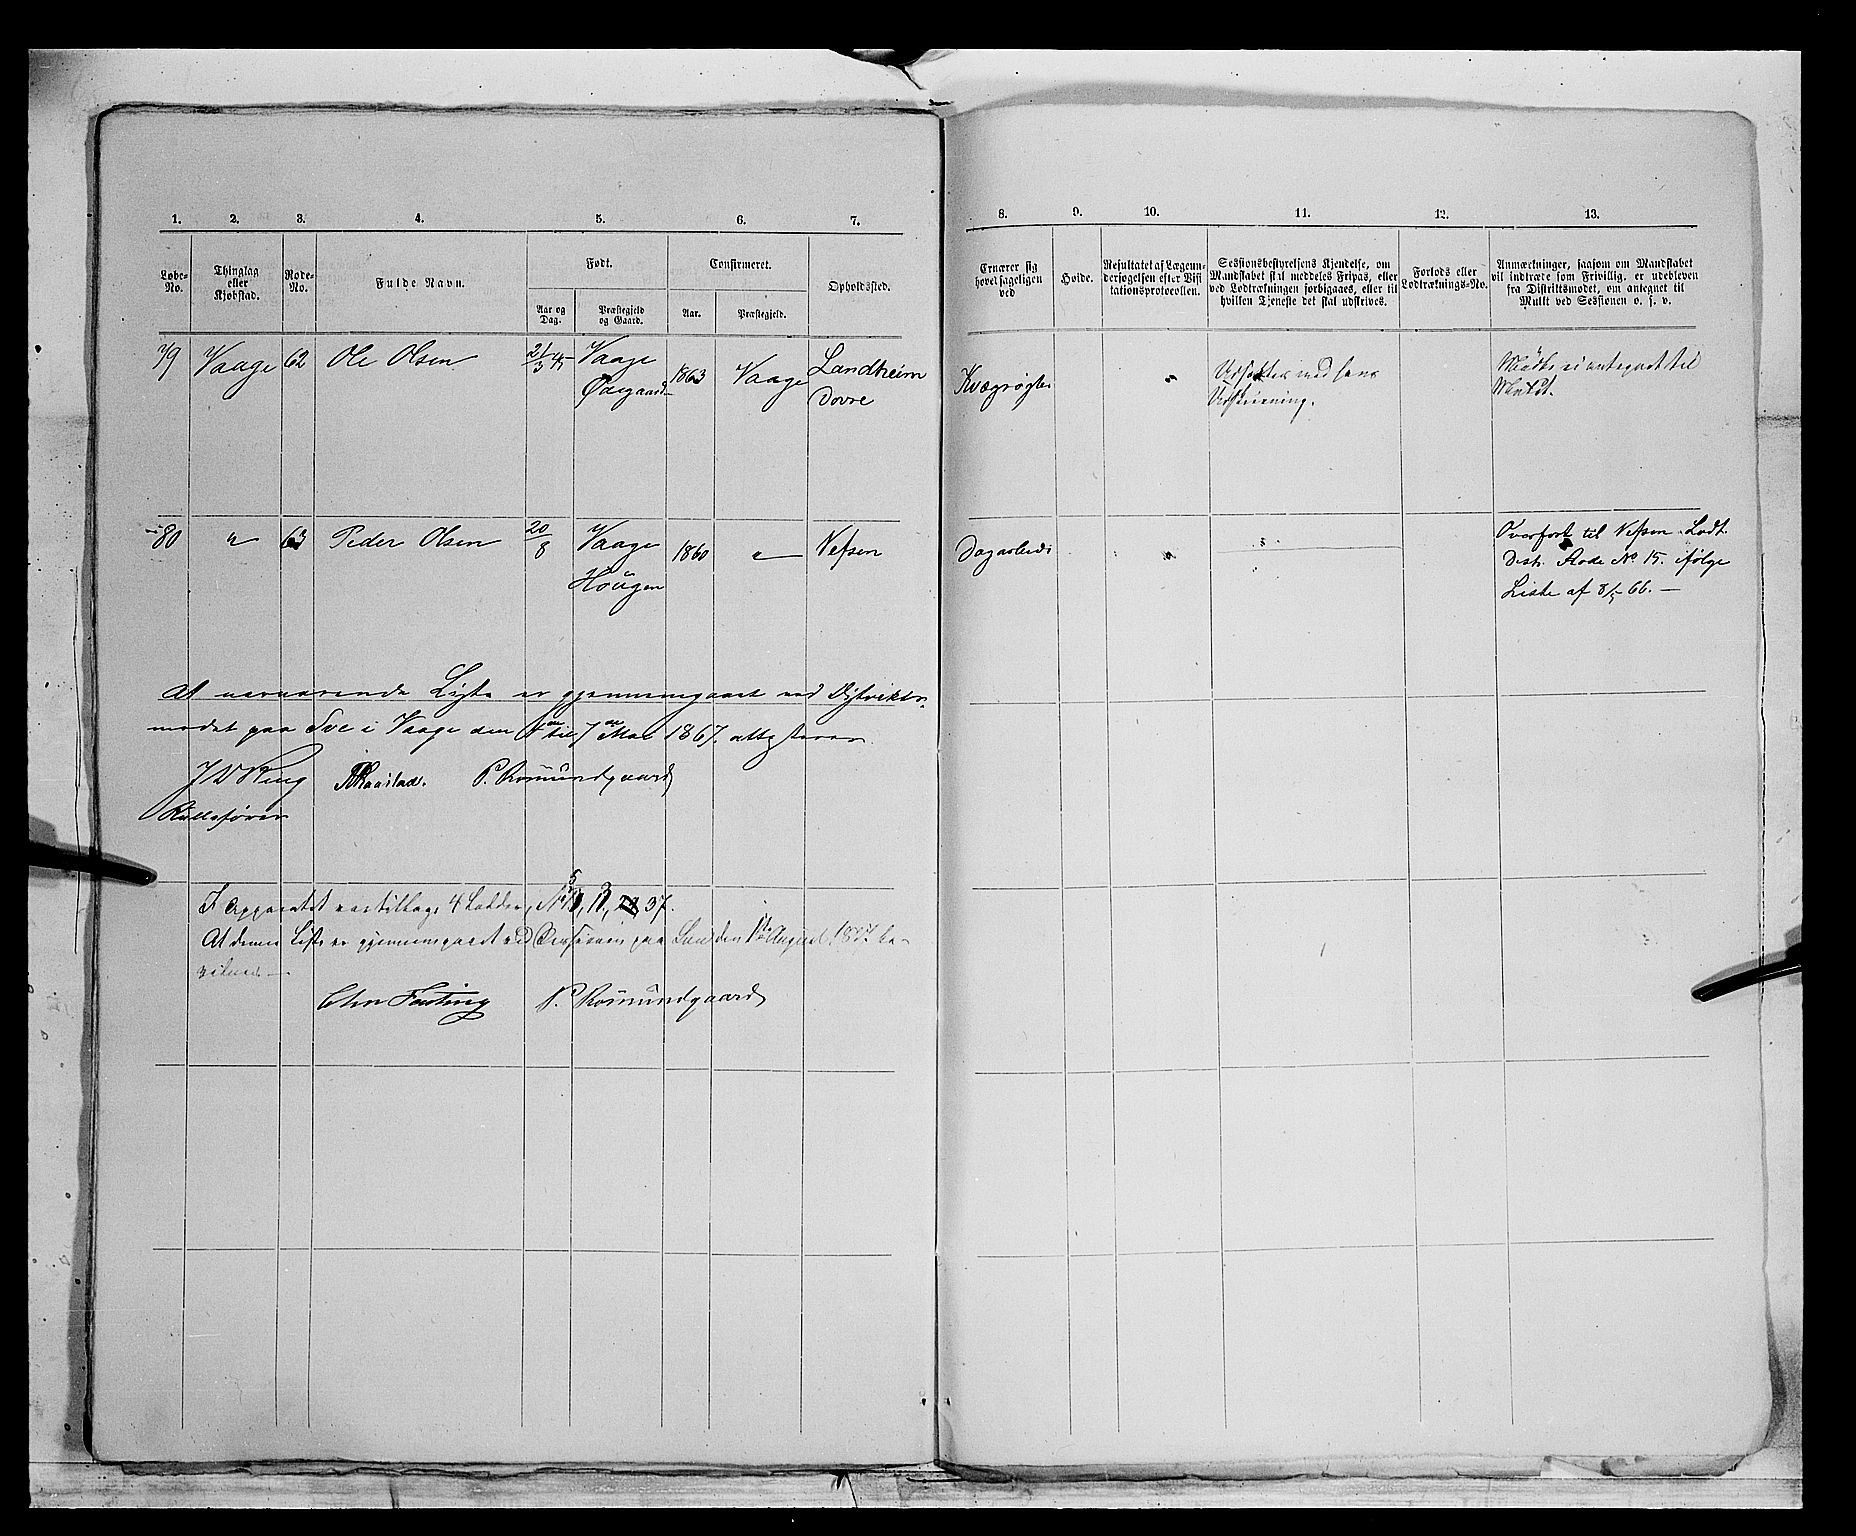 1. 2. 3. 4. 5. 6. 7.
Løbe-No. Thinglag eller Kjøbstad. Rode-No. Fulde Navn. Født. Confirmeret. Opholdssted.
Aar og Dag. Præstegjeld og Gaard. Aar. Præstegjeld.
79 Vaage 62 Ole Olsen 21/3 45 Vaage 1863 Vaage Landheim
Øygaard Dovre
80 " 63 Peder Olsen 20/8 Vaage 1860 " Vefsen
Hougen
At nærværende Liste er gjennemgaaet ved Distrikts-
mødet paa Sve i Vaage den til 7de Mai 1867. attesterer
Ring P. Romundgaard
Rullefører
I Apparatet 4 Lodder, No 37.
At denne Liste er gjennemgaaet ved Sessionen paa den August 1867 be-
vidnes
Chr Fasting P. Romundgaard
8. 9. 10. 11. 12. 13.
Ernærer sig hovedsageligen ved
Høide.
Resultatet af Lægeundersøgelsen efter Visitationsprotocollen.
Sessionsbestyrelsens Kjendelse, om Mandskabet skal meddeles Fripas, eller ved Lodtrækningen forbigaaes, eller til hvilken Tjeneste det skal udskrives.
Forlods eller Lodtræknings-No.
Anmærkninger, saasom om Mandskabet vil indtræde som Frivillig, er udebleven fra Distriktsmødet, om antegnet til Mulkt ved Sessionen o. s. v.
Kvægrøgter " Udsættes med hans Mødte ei antegnet til
Udskrivning. Mulkt.
Dagarbeide " Overført til Vefsen Lodt.
Distr. Rode No 15. ifølge
Liste af 8/5 66.